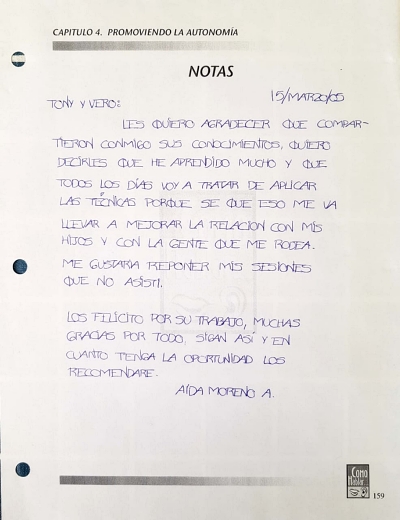 CAPITULO 4. PROMOVIENDO LA AUTONOMÍA
NOTAS
15/MARZO/05
TONY Y VERO:
LES QUIERO AGRADECER QUE COMPAR-
TIERON CONMIGO SUS CONOCIMIENTOS, QUIERO
DECIRLES QUE HE APRENDIDO MUCHO Y QUE
TODOS LOS DÍAS VOY A TRATAR DE APLICAR
LAS TÉCNICAS PORQUE SE QUE ESO ME VA
LLEVAR A MEJORAR LA RELACION CON MIS
HIJOS Y CON LA GENTE QUE ME RODEA.
ME GUSTARIA REPONER MIS SESIONES
QUE NO ASISTI.
LOS FELICITO POR SU TRABAJO, MUCHAS
GRACIAS POR TODO, SIGAN ASÍ Y EN
CUANTO TENGA LA OPORTUNIDAD LOS
RECOMENDARE.
AÍDA MORENO A.
Como
Hablar
159